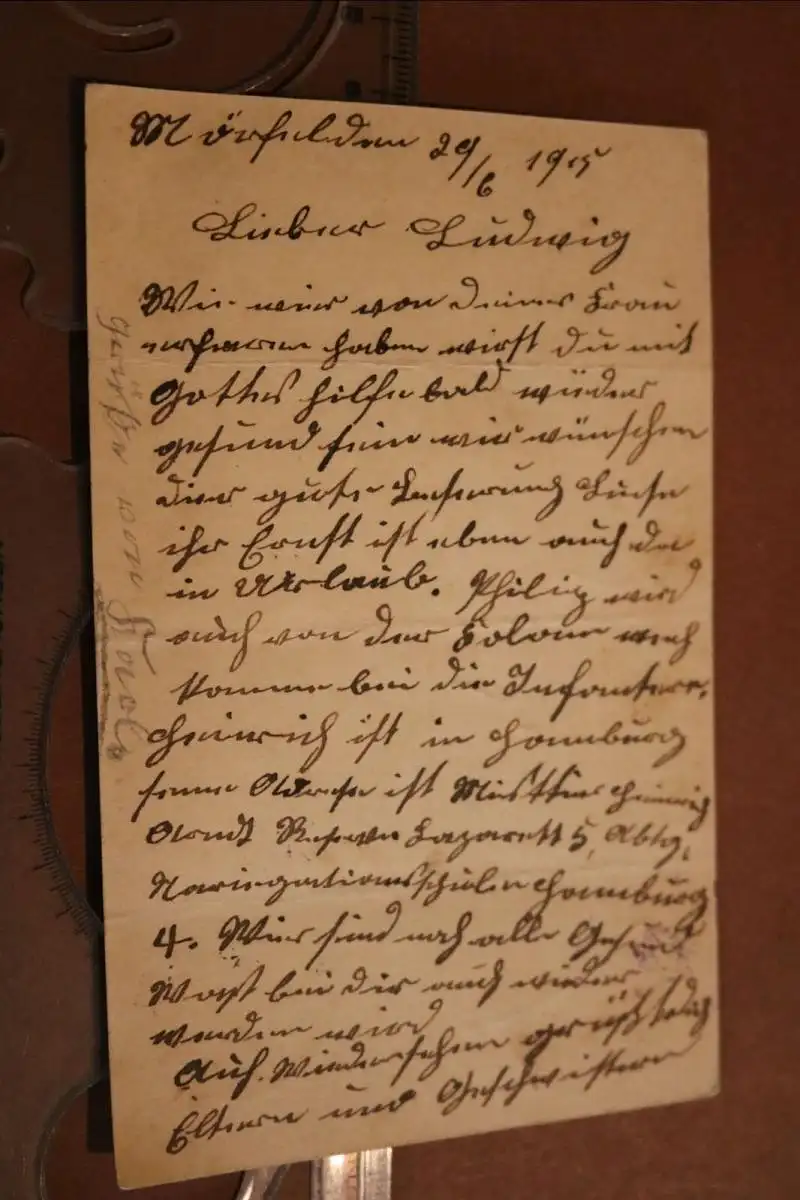 Mörfelden 29/6 1915
Lieber Ludwig
Wie wier von deiner Frau
erfaren haben wirst du mit
Gottes hilfe bald wieder
gesund sein wir wünschen
dier gute Besserung Luise
ihr Ernst ist eben auch da
in Urlaub. Philip wird
auch von der Kolone wech
komme bei die Infanterr.
Heinrich ist in Hamburg
seine Adrese ist Heinrich
Arndt Reserve Lazarett 5, Abtg.
Navigationsschule Hamburg
4. Wier sind noch alle Gesund
bei dir auch wieder
werden wird
Auf. Wiedersehen grüßt dich
Eltern und Geschwistern
Grüße von Karl